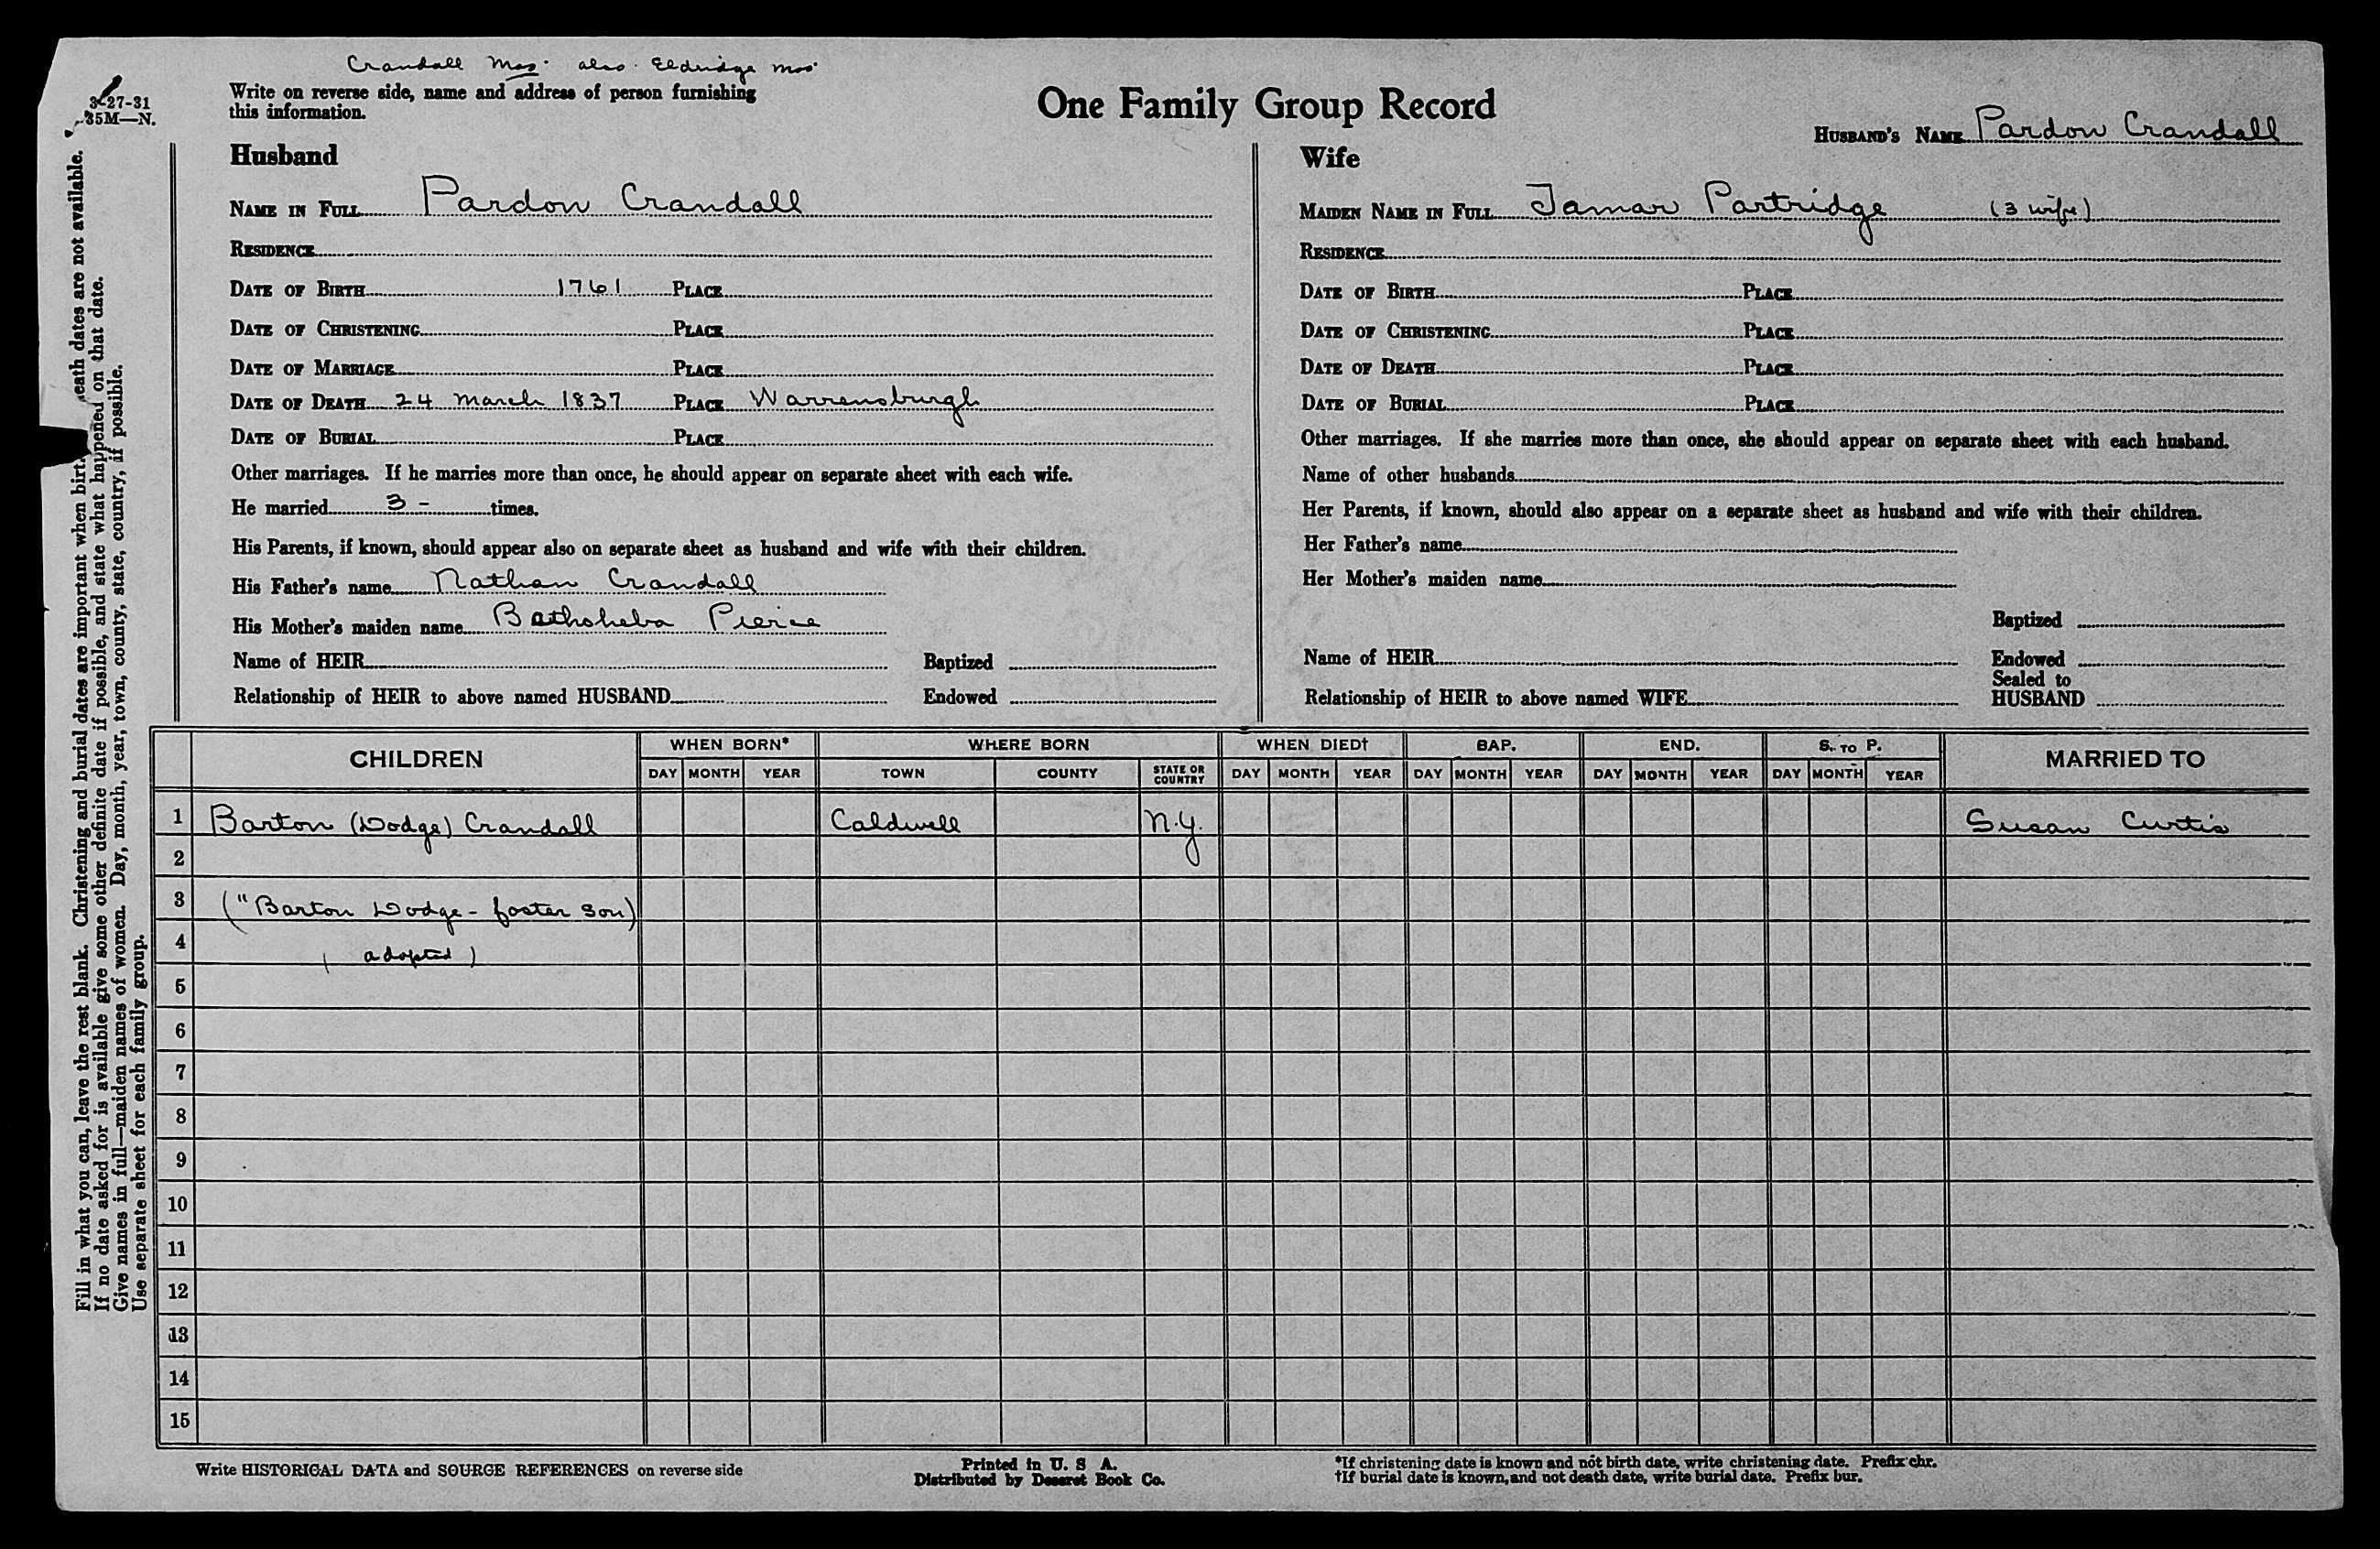 Crandall Mss. also Eldridge mss
3-27-31
35M—N.
Write on reverse side, name and address of person furnishing
this information.
One Family Group Record
HUSBAND'S NAME Pardon Crandall
Husband
NAME IN FULL Pardon Crandall
RESIDENCE
DATE OF BIRTH 1761 PLACE
DATE OF CHRISTENING PLACE
DATE OF MARRIAGE PLACE
DATE OF DEATH 24 March 1837 PLACE Warrensburgh
DATE OF BURIAL PLACE
Other marriages. If he marries more than once, he should appear on separate sheet with each wife.
He married 3 - times.
His Parents, if known, should appear also on separate sheet as husband and wife with their children.
His Father's name Nathan Crandall
His Mother's maiden name Bathsheba Pierce
Name of HEIR Baptized
Relationship of HEIR to above named HUSBAND Endowed
Wife
MAIDEN NAME IN FULL Tamar Partridge (3 wife)
RESIDENCE
DATE OF BIRTH PLACE
DATE OF CHRISTENING PLACE
DATE OF DEATH PLACE
DATE OF BURIAL PLACE
Other marriages. If she marries more than once, she should appear on separate sheet with each husband.
Name of other husbands
Her Parents, if known, should also appear on a separate sheet as husband and wife with their children.
Her Father's name
Her Mother's maiden name
Baptized
Name of HEIR Endowed
Sealed to
Relationship of HEIR to above named WIFE HUSBAND
CHILDREN WHEN BORN* WHERE BORN WHEN DIED† BAP. END. S. TO P. MARRIED TO
DAY MONTH YEAR TOWN COUNTY STATE OR COUNTRY DAY MONTH YEAR DAY MONTH YEAR DAY MONTH YEAR DAY MONTH YEAR
1 Barton (Dodge) Crandall Caldwell N.Y. Susan Curtis
2
3 ("Barton Dodge - foster son)
4 ( adopted )
5
6
7
8
9
10
11
12
13
14
15
Write HISTORICAL DATA and SOURCE REFERENCES on reverse side
Printed in U. S A.
Distributed by Deseret Book Co.
*If christening date is known and not birth date, write christening date. Prefix chr.
†If burial date is known, and not death date, write burial date. Prefix bur.
Fill in what you can, leave the rest blank. Christening and burial dates are important when birt. eath dates are not available.
If no date asked for is available give some other definite date if possible, and state what happened on that date.
Give names in full—maiden names of women. Day, month, year, town, county, state, country, if possible.
Use separate sheet for each family group.